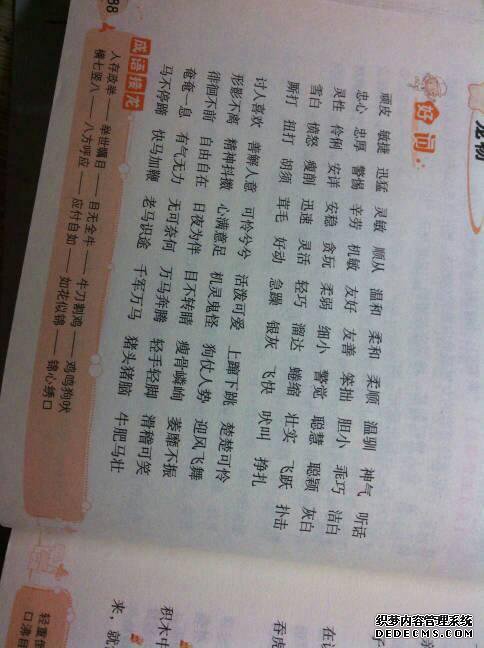 宠物
好词
顽皮 敏捷 迅猛 灵敏 顺从 温和 柔和 柔顺 温驯 神气 听话
忠心 忠厚 警惕 辛劳 机敏 友好 友善 笨拙 胆小 乖巧 洁白
灵性 伶俐 安详 安稳 贪玩 柔弱 细小 警觉 聪慧 聪颖 灰白
雪白 愤怒 瘦削 迅速 灵活 轻巧 溜达 蜷缩 壮实 飞跃 扑击
厮打 扭打 胡须 茸毛 好动 急躁 银灰 飞快 吠叫 挣扎
讨人喜欢 善解人意 可怜兮兮 活泼可爱 上蹿下跳 楚楚可怜
形影不离 精神抖擞 心满意足 机灵鬼怪 狗仗人势 迎风飞舞
徘徊不前 自由自在 日夜为伴 目不转睛 瘦骨嶙峋 萎靡不振
奄奄一息 有气无力 无可奈何 万马奔腾 轻手轻脚 滑稽可笑
马不停蹄 快马加鞭 老马识途 千军万马 猪头猪脑 牛肥马壮
成语接龙
人存政举——举世瞩目——目无全牛——牛刀割鸡——鸡鸣狗吠
横七竖八——八方呼应——应付自如——如花似锦——锦心绣口
88
吞虎
积木中
来，就
轻重
口沸目
织梦内容管理系统
DEDECMS.COM